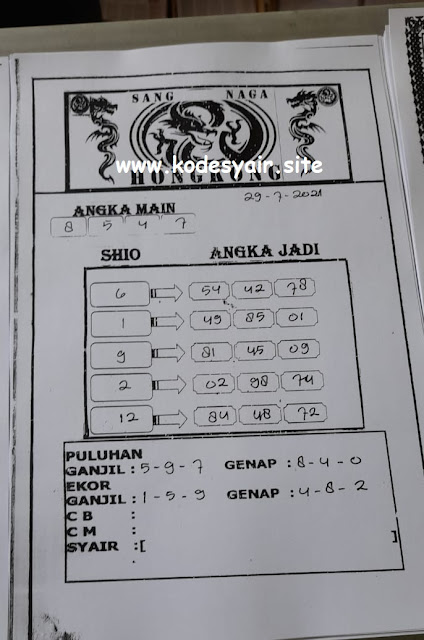 SANG NAGA
www.kodesyair.site
HONGKONG
29-7-2021
ANGKA MAIN
8 5 4 7
SHIO ANGKA JADI
6 54 42 78
1 49 85 01
9 81 45 09
2 02 98 74
12 84 48 72
PULUHAN
GANJIL : 5-9-7 GENAP : 8-4-0
EKOR
GANJIL : 1-5-9 GENAP : 4-8-2
C B :
C M :
SYAIR :[ ]